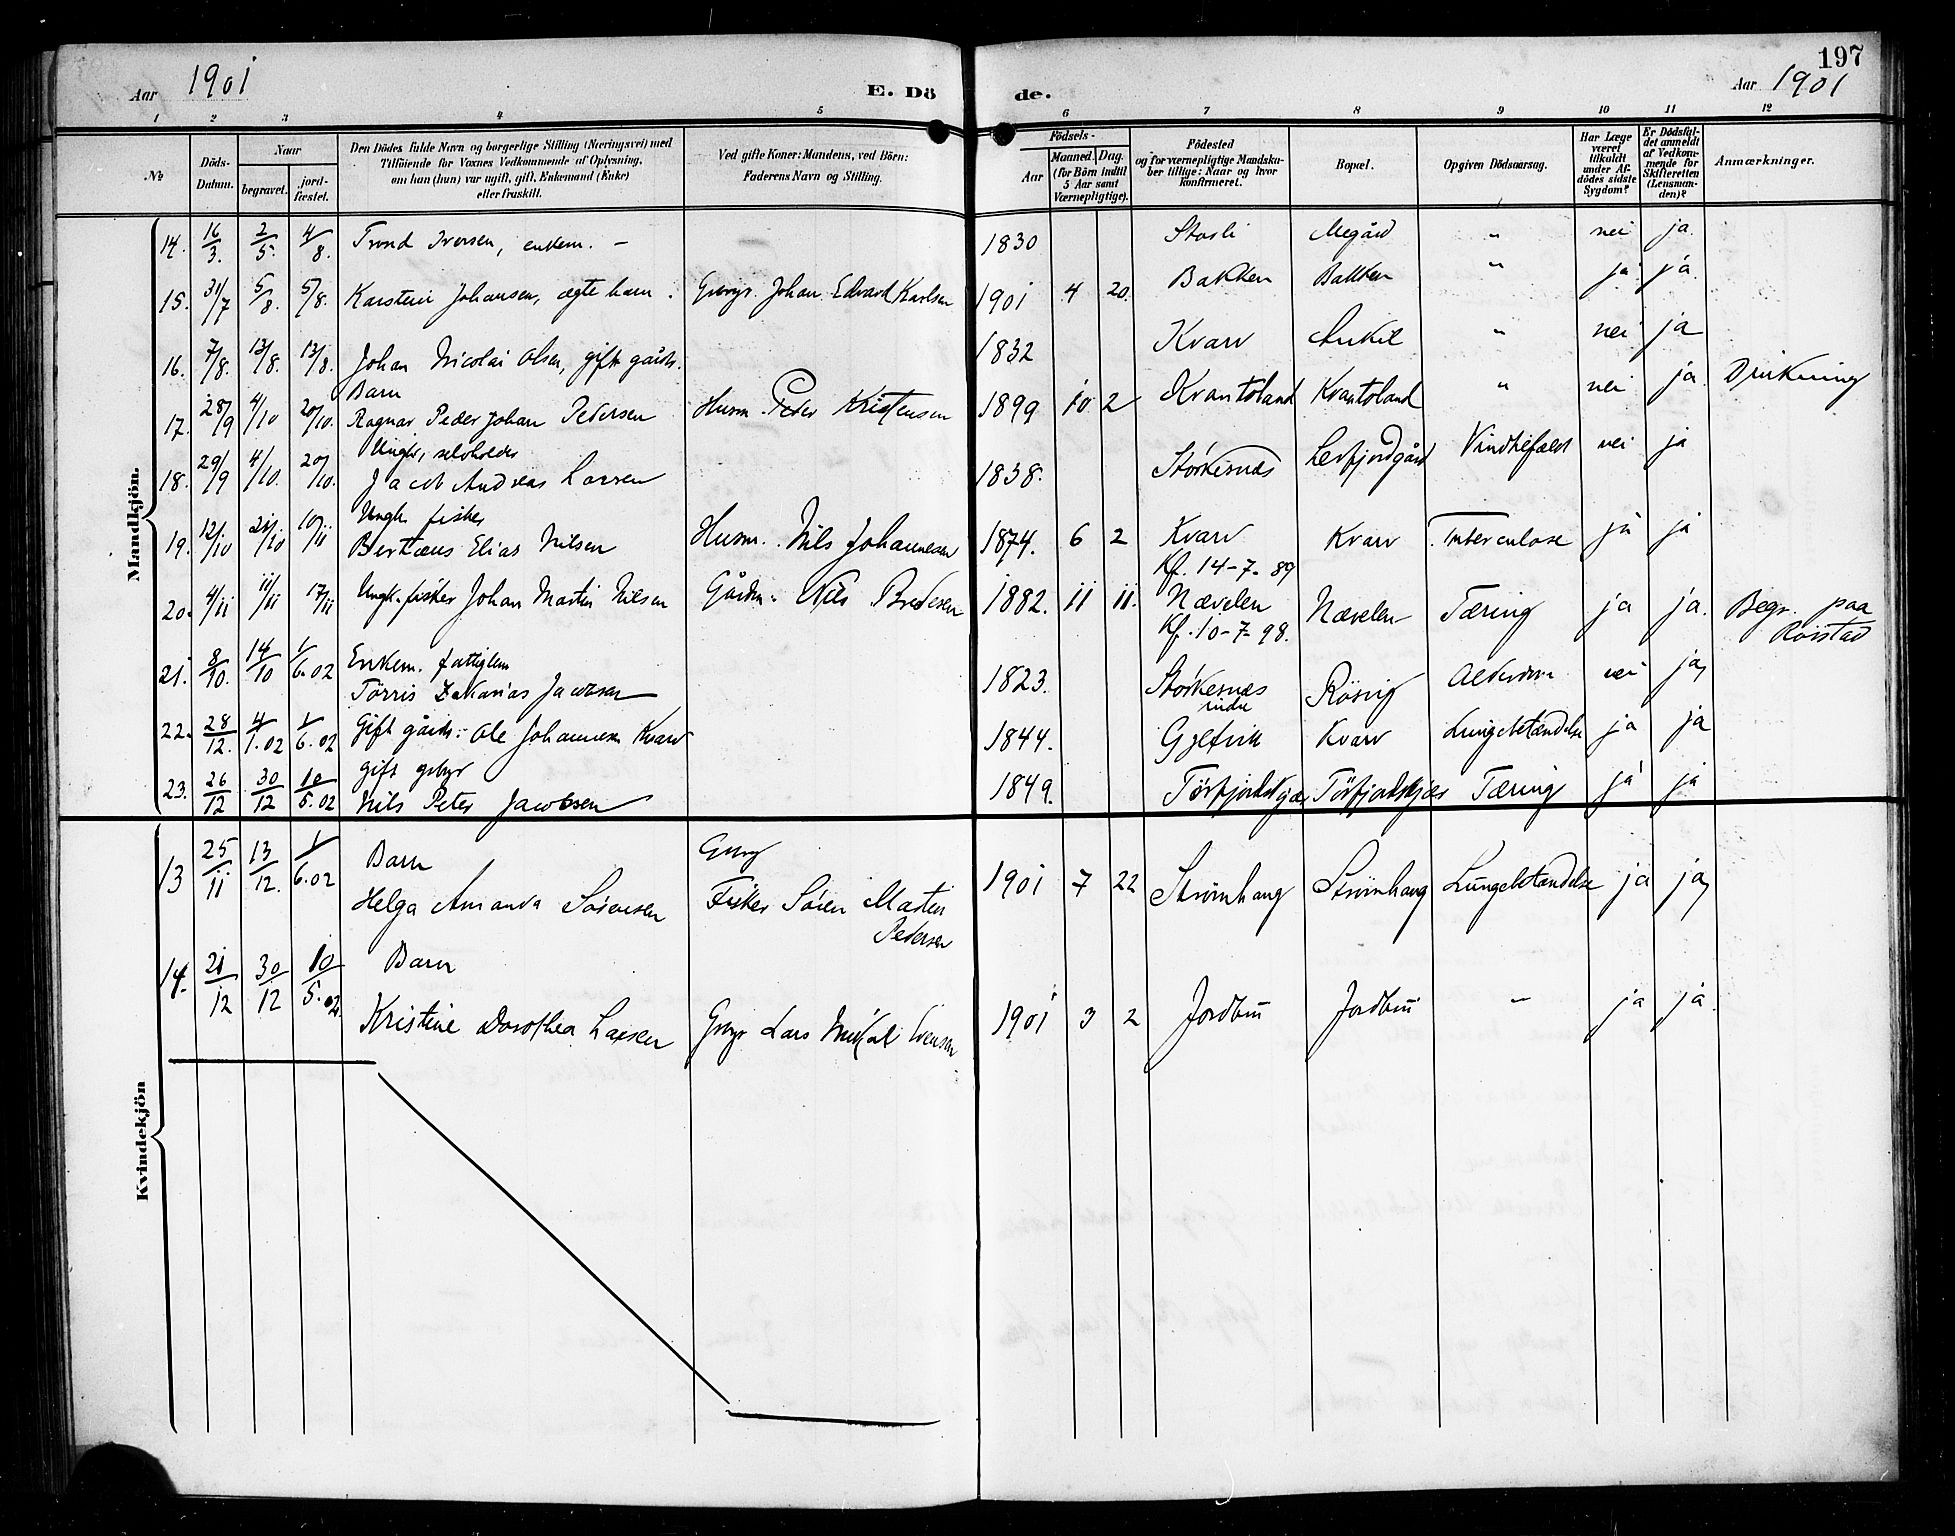 197
Aar 1901
E. Dö
de.
Aar 1901
1 2 3 4 5 6 7 8 9 10 11 12
№
Döds-Datum.
Naar
begravet.
jord-fæstet.
Den Dödes fulde Navn og borgerlige Stilling (Næringsvei) med
Tilföiende for Voxnes Vedkommende af Oplysning,
om han (hun) var ugift, gift, Enkemand (Enke)
eller fraskilt.
Ved gifte Koner: Mandens, ved Börn:
Faderens Navn og Stilling.
Födsels-
Aar
Maaned. Dag.
(for Börn indtil
5 Aar samt
Værnepligtige).
Födested
og for værnepligtige Mandska-
ber tillige: Naar og hvor
konfirmeret.
Bopæl.
Opgiven Dödsaarsag.
Har Læge
været
tilkaldt
under Af-
dödes sidste
Sygdom?
Er Dödsfal-
det anmeldt
af Vedkom-
mende for
Skifteretten
(Lensman-
den)?
Anmærkninger.
Mandkjön.
14. 16/3. 2/5. 4/8. Trond Iversen, enkem. – 1830 Storli Megård " nei ja.
15. 31/7 5/8. 5/8. Karsten Johansen, ægte barn. Gbrugr. Johan Edvard Karlsen 1901 4 20. Bakken Bakken " ja ja.
16. 7/8. 13/8. 13/8. Johan Nicolai Olsen, gift gårdb. 1832 Kvarv " nei ja
Barn
17. 28/9 4/10 20/10. Ragnar Peder Johan Pedersen Husm. Peder Kristensen 1899 10 2 Kvantoland Kvantoland " nei ja Drukning
Ungk., selvholdes
18. 29/9 4/10. 20/10. Jacob Andreas Larsen 1838. Storkesnæs Lerfjordgård Vindhefæst nei ja
Ungk. fisker
19. 12/10 21/10 10/11 Bertæus Elias Nilsen Husm. Nils Johannesen 1874. 6 2 Kvarv Kvarv Tuberculose ja ja
Kf. 14-7-89
20. 4/11 11/11 17/11 Ungk. fisker Johan Martin Nilsen Gårdm. Nils Bredesen 1882. 11 11. Nævelen Nævelen Tæring ja ja. Begr. paa Røistad
Kf. 10-7-98.
Enkem. fattiglem
21. 8/10. 14/10 1/6.02 Tørris Zakarias Jacobsen 1823. Storkesnæs indre Røsvig Alderdom nei ja
22. 28/12. 4/1.02 1/6.02 Gift gårdb. Ole Johannesen Kvarv 1844. Gjelvik Kvarv Lungebetændelse ja ja
gift gbgr
23. 26/12 30/12 10/5.02 Nils Peter Jacobsen 1849. Tørfjordskjær Tørfjordskjær Tæring ja ja
Kvindekjön
Barn Gbrug
13 25/11 13/12. 1/6.02 Helga Amanda Sørensen Fisker Søren Martin Pedersen 1901 7 22 Strømhaug Strømhaug Lungebetændelse ja ja
Barn
14. 21/12 30/12 10/5.02 Kristine Dorothea Larsen Gbrgr Lars Mikal Evensen 1901 3 2 Jordbru Jordbru " ja ja